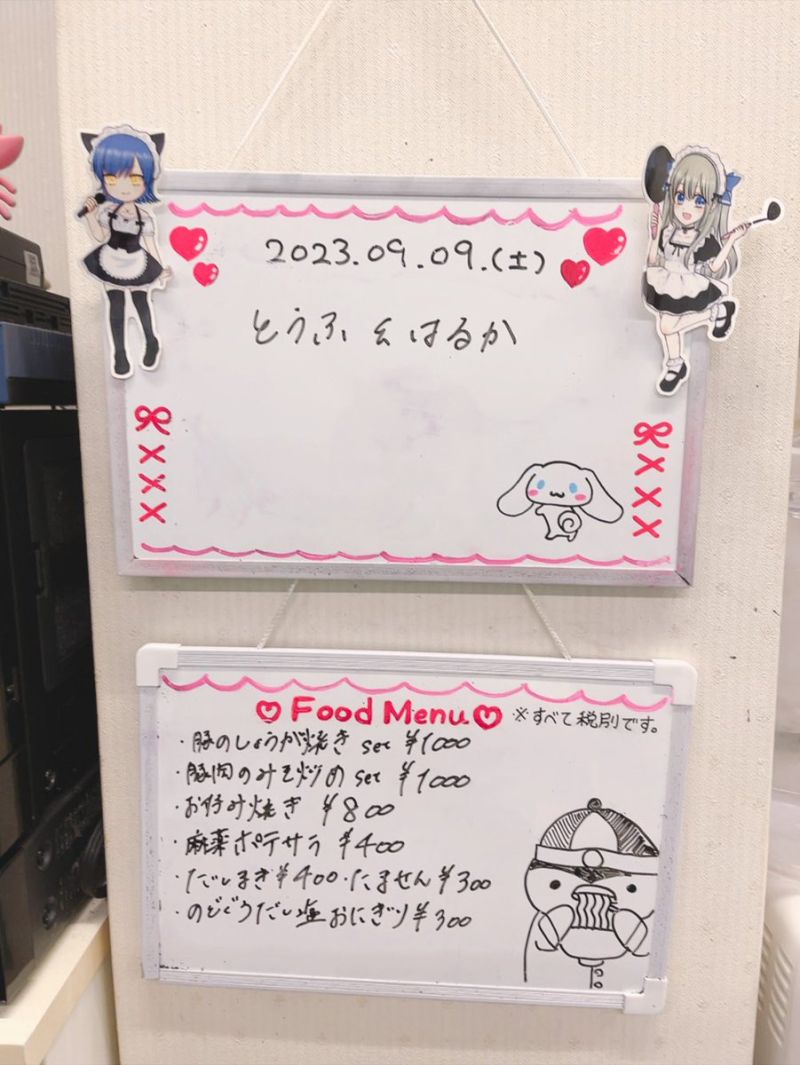 2023.09.09.(土)
とうふ & はるか
Food Menu ※すべて税別です。
・豚のしょうが焼き set ¥1000
・豚肉のみそ炒め set ¥1000
・お好み焼き ¥800
・麻薬ポテサラ ¥400
・だしまき¥400・たません¥300
・のどぐろだし塩おにぎり¥300